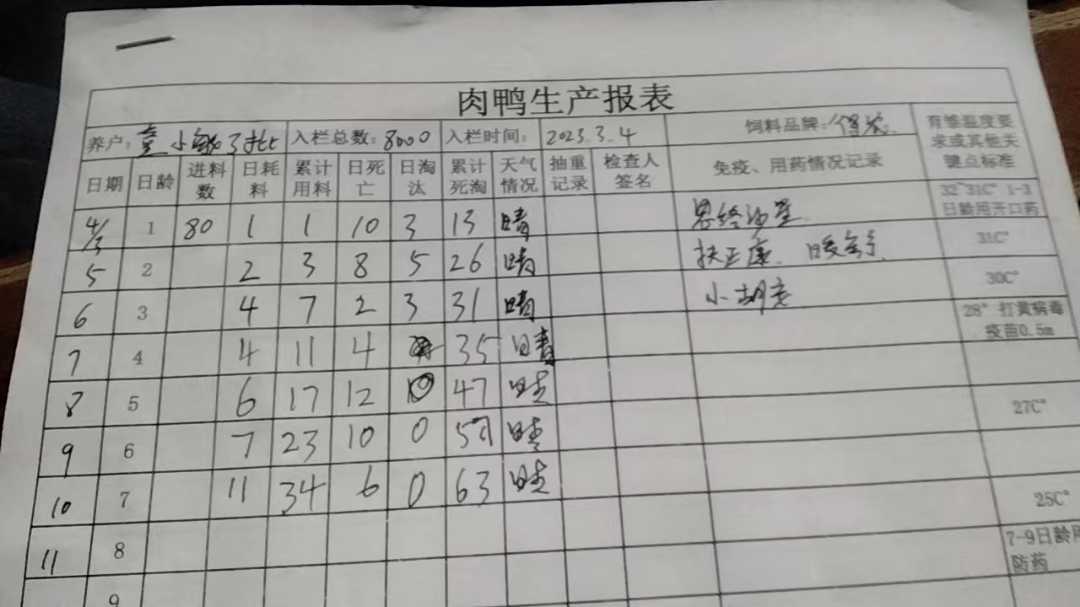 肉鸭生产报表
养户: 小敏 入栏总数:8000 入栏时间: 2023.3.4 饲料品牌: 育雏温度要求或其他关键点标准
日期 日龄 进料数 日耗料 累计用料 日死亡 日淘汰 累计死淘 天气情况 抽重记录 检查人签名 免疫、用药情况记录
4/3 1 80 1 1 10 3 13 晴 恩 沙星 32~31C° 1-3日龄用开口药
5 2 2 3 8 5 26 晴 扶正康 31C°
6 3 4 7 2 3 31 晴 小 30C°
7 4 4 11 4 35 晴 28° 打黄病毒疫苗0.5m
8 5 6 17 12 47 晴
9 6 7 23 10 0 57 晴 27C°
10 7 11 34 6 0 63 晴
11 8 25C°
9 7-9日龄用防药